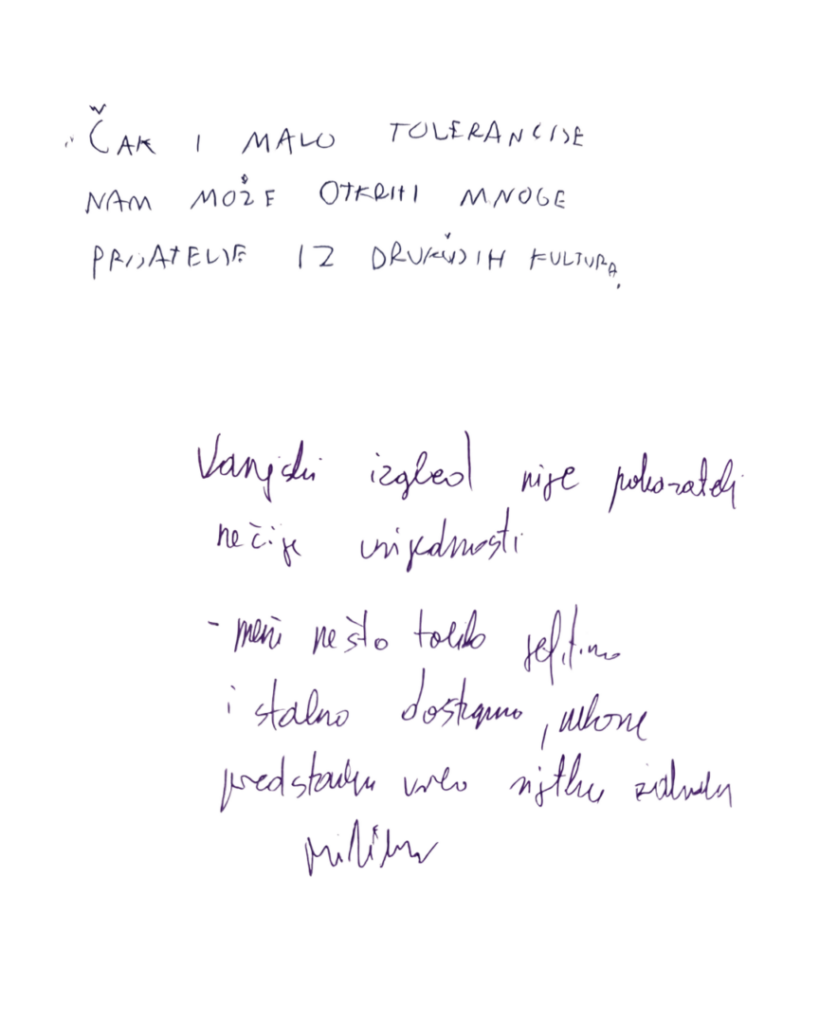 ČAK I MALO TOLERANCIJE
NAM MOŽE OTKRITI MNOGE
PRIJATELJE IZ DRUKČIJIH KULTURA.
Vanjski izgled nije pokazatelj
nečije vrijednosti
- meni nešto toliko jeftino
i stalno dostupno, nekome
predstavlja vrlo rijetku
priliku